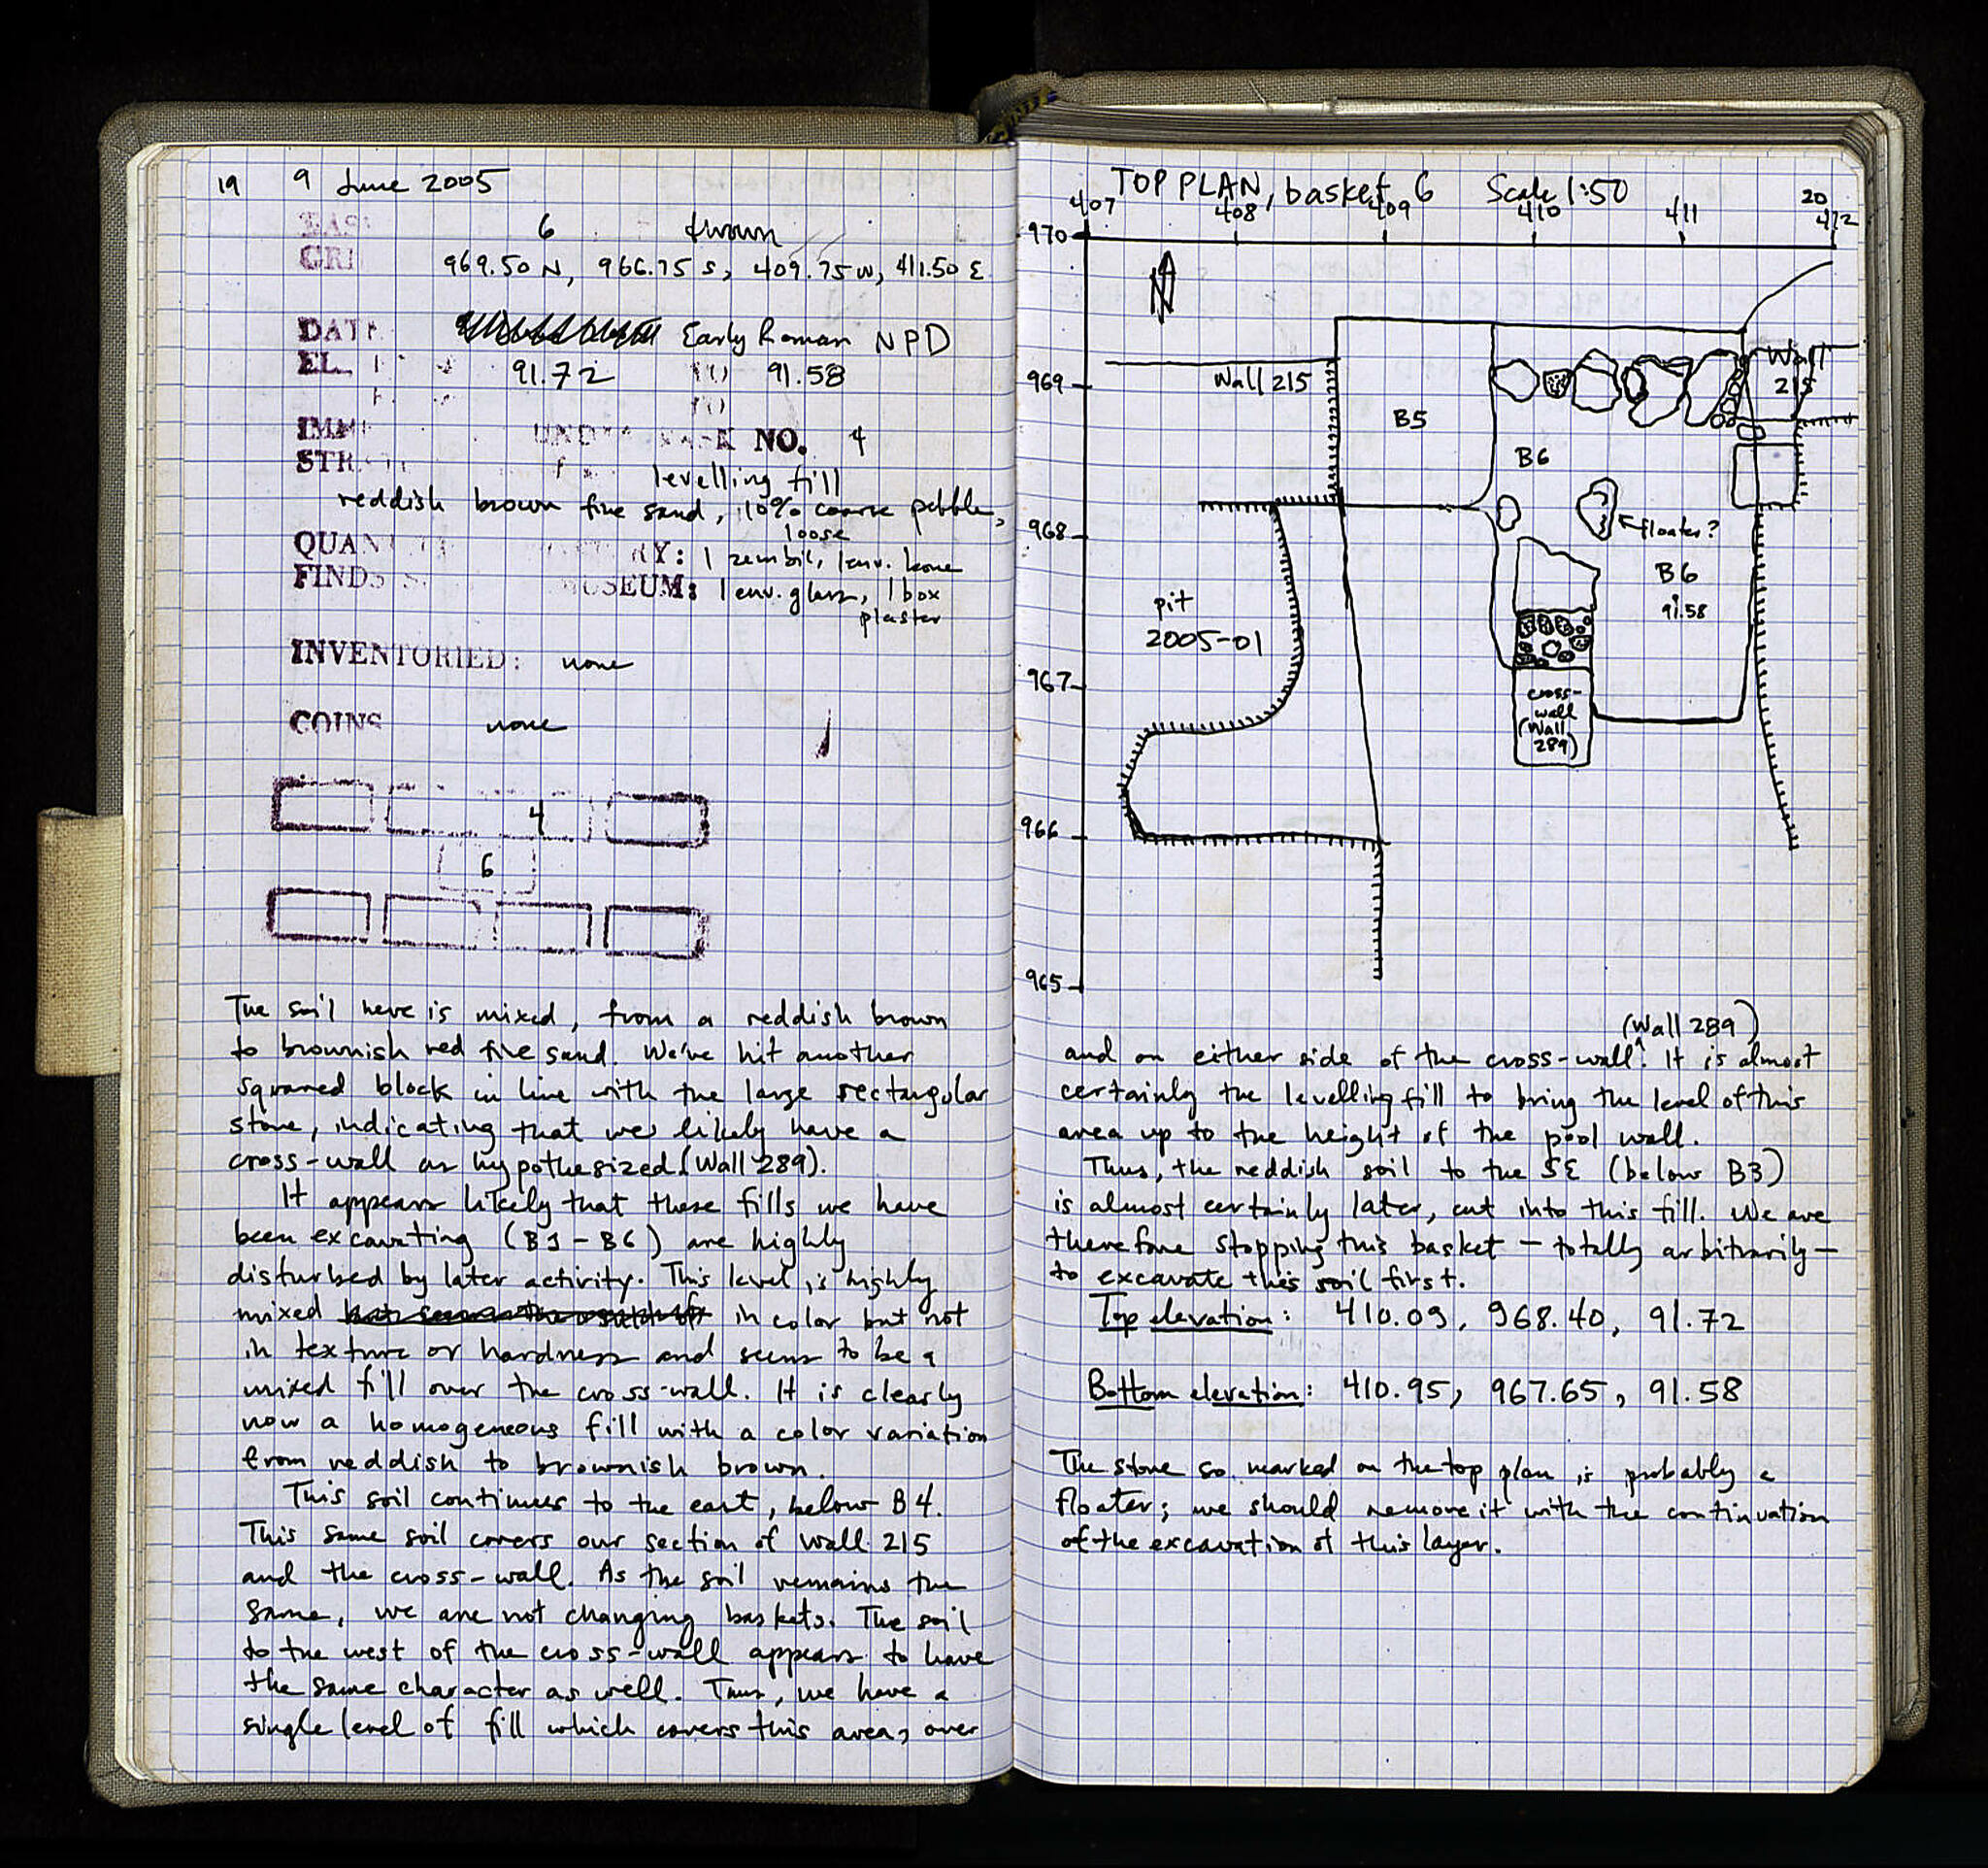 19 9 June 2005
6 thrown
GRI 969.50 N, 966.75 S, 409.75 W, 411.50 E
DATE Early Roman NPD
EL. 91.72 TO 91.58
TO
NO. 4
levelling fill
reddish brown fine sand, 10% coarse pebble,
loose
QUAN RY: 1 zembil, 1 env. bone
FINDS USEUM: 1 env. glass, 1 box
plaster
INVENTORIED: none
COINS none
4
6
The soil here is mixed, from a reddish brown
to brownish red fine sand. We've hit another
squared block in line with the large rectangular
stone, indicating that we likely have a
cross-wall as hypothesized (Wall 289).
It appears likely that these fills we have
been excavating (B3 - B6) are highly
disturbed by later activity. This level is highly
mixed in color but not
in texture or hardness and seems to be a
mixed fill over the cross-wall. It is clearly
now a homogeneous fill with a color variation
from reddish to brownish brown.
This soil continues to the east, below B4.
This same soil covers our section of Wall 215
and the cross-wall. As the soil remains the
same, we are not changing baskets. The soil
to the west of the cross-wall appears to have
the same character as well. Thus, we have a
single level of fill which covers this area, over
TOP PLAN, basket 6 Scale 1:50 20
407 408 409 410 411 412
970
969
968
967
966
965
N
Wall 215
Wall
215
B5
B6
floater?
B6
91.58
pit
2005-01
cross-
wall
(Wall
289)
(Wall 289)
and on either side of the cross-wall. It is almost
certainly the levelling fill to bring the level of this
area up to the height of the pool wall.
Thus, the reddish soil to the SE (below B3)
is almost certainly later, cut into this fill. We are
therefore stopping this basket - totally arbitrarily -
to excavate this soil first.
Top elevation: 410.09, 968.40, 91.72
Bottom elevation: 410.95, 967.65, 91.58
The stone so marked on the top plan is probably a
floater; we should remove it with the continuation
of the excavation of this layer.